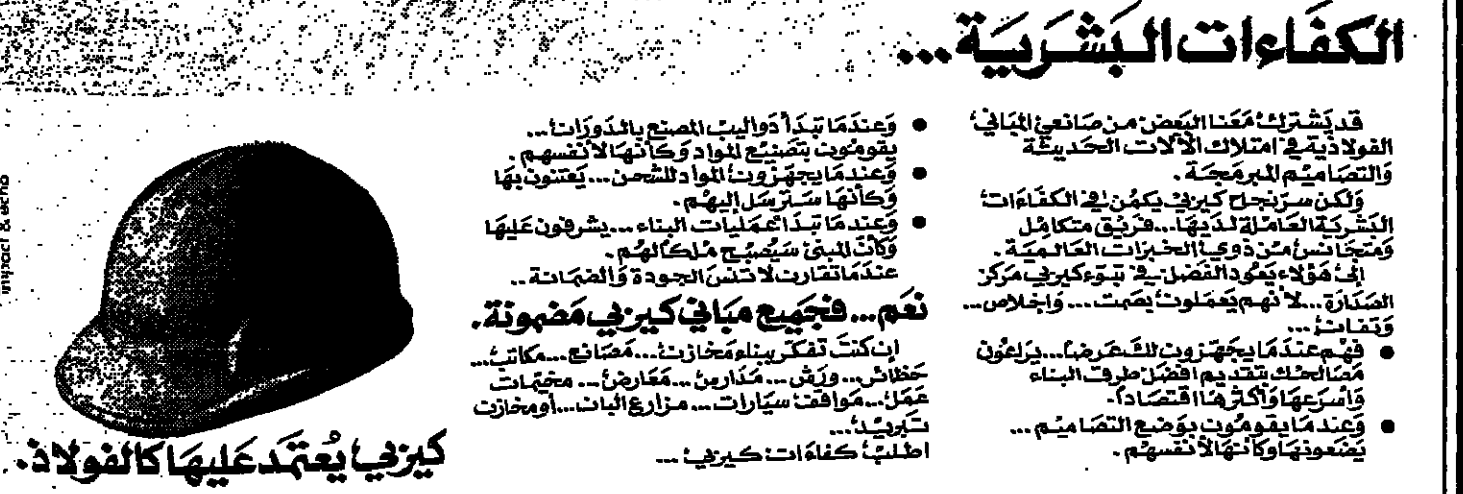 الكفاءات البشرية...
قد يشترك معنا البعض من صانعي المباني
الفولاذية في امتلاك الآلات الحديثة
والتصاميم المبرمجة.
ولكن سر نجاح كيربي يكمن في الكفاءات
البشرية العاملة لديها... فريق متكامل
ومتجانس من ذوي الخبرات العالمية.
إلى هؤلاء يعود الفضل في تبوء كيربي مركز
الصدارة... لأنهم يعملون بصمت.... وإخلاص...
وتفان...
• فهم عندما يجهزون لك عرضاً... يراعون
مصالحك بتقديم أفضل طرق البناء
وأسرعها وأكثرها اقتصاداً.
• وعندما يقومون بوضع التصاميم...
يضعونها وكأنها لأنفسهم.
• وعندما تبدأ دواليب المصنع بالدوران...
يقومون بتصنيع المواد وكأنها لأنفسهم.
• وعندما يجهزون المواد للشحن... يعتنون بها
وكأنها سترسل إليهم.
• وعندما تبدأ عمليات البناء... يشرفون عليها
وكأن المبنى سيصبح ملكاً لهم.
عندما تقارن لا تنس الجودة والضمانة..
نعم... فجميع مباني كيربي مضمونة.
إن كنت تفكر ببناء مخازن... مصانع... مكاتب...
حظائر... ورش... مدارس... معارض... مخيمات
عمل... مواقف سيارات... مزارع البان... أو مخازن
تبريد...
اطلب كفاءات كيربي...
كيربي يُعتمد عليها كالفولاذ.
impact & echo